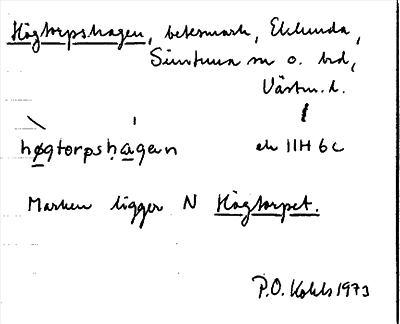 Högtorpshagen, betesmark, Eklunda,
Simtuna sn o. hd,
Västm. l.
høgtorpsha̱gan ek 11H 6c
Marken ligger N Högtorpet.
P.O. Kohls 1973